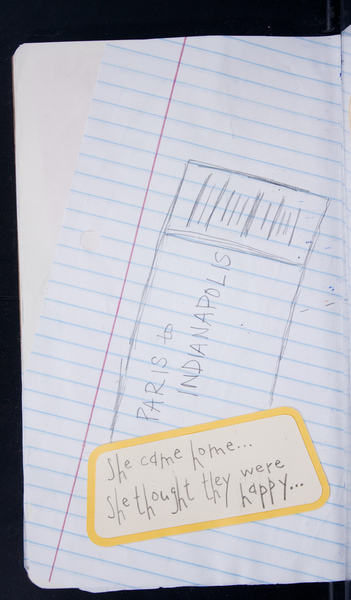 PARIS to
INDIANAPOLIS
She came home...
She thought they were
happy...